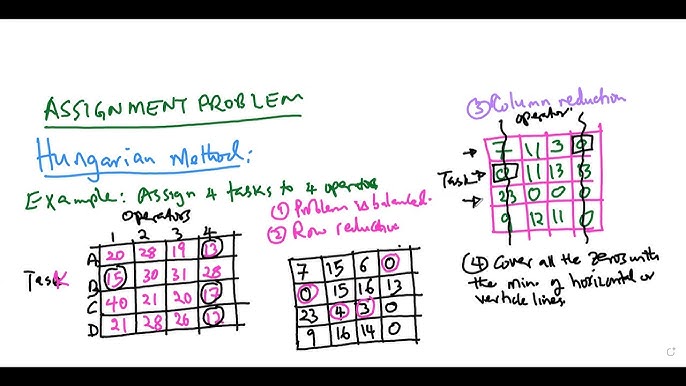 ASSIGNMENT PROBLEM
Hungarian Method:
Example: Assign 4 tasks to 4 operators
operators
1 2 3 4
Task
A 20 28 19 13
B 15 30 31 28
C 40 21 20 17
D 21 28 26 12
① Problem is balanced.
② Row reduction
7 15 6 0
0 15 16 13
23 4 3 0
9 16 14 0
③ Column reduction
operator
Task
7 11 3 0
0 11 13 13
23 0 0 0
9 12 11 0
④ Cover all the zeros with
the min. of horizontal or
verticle lines